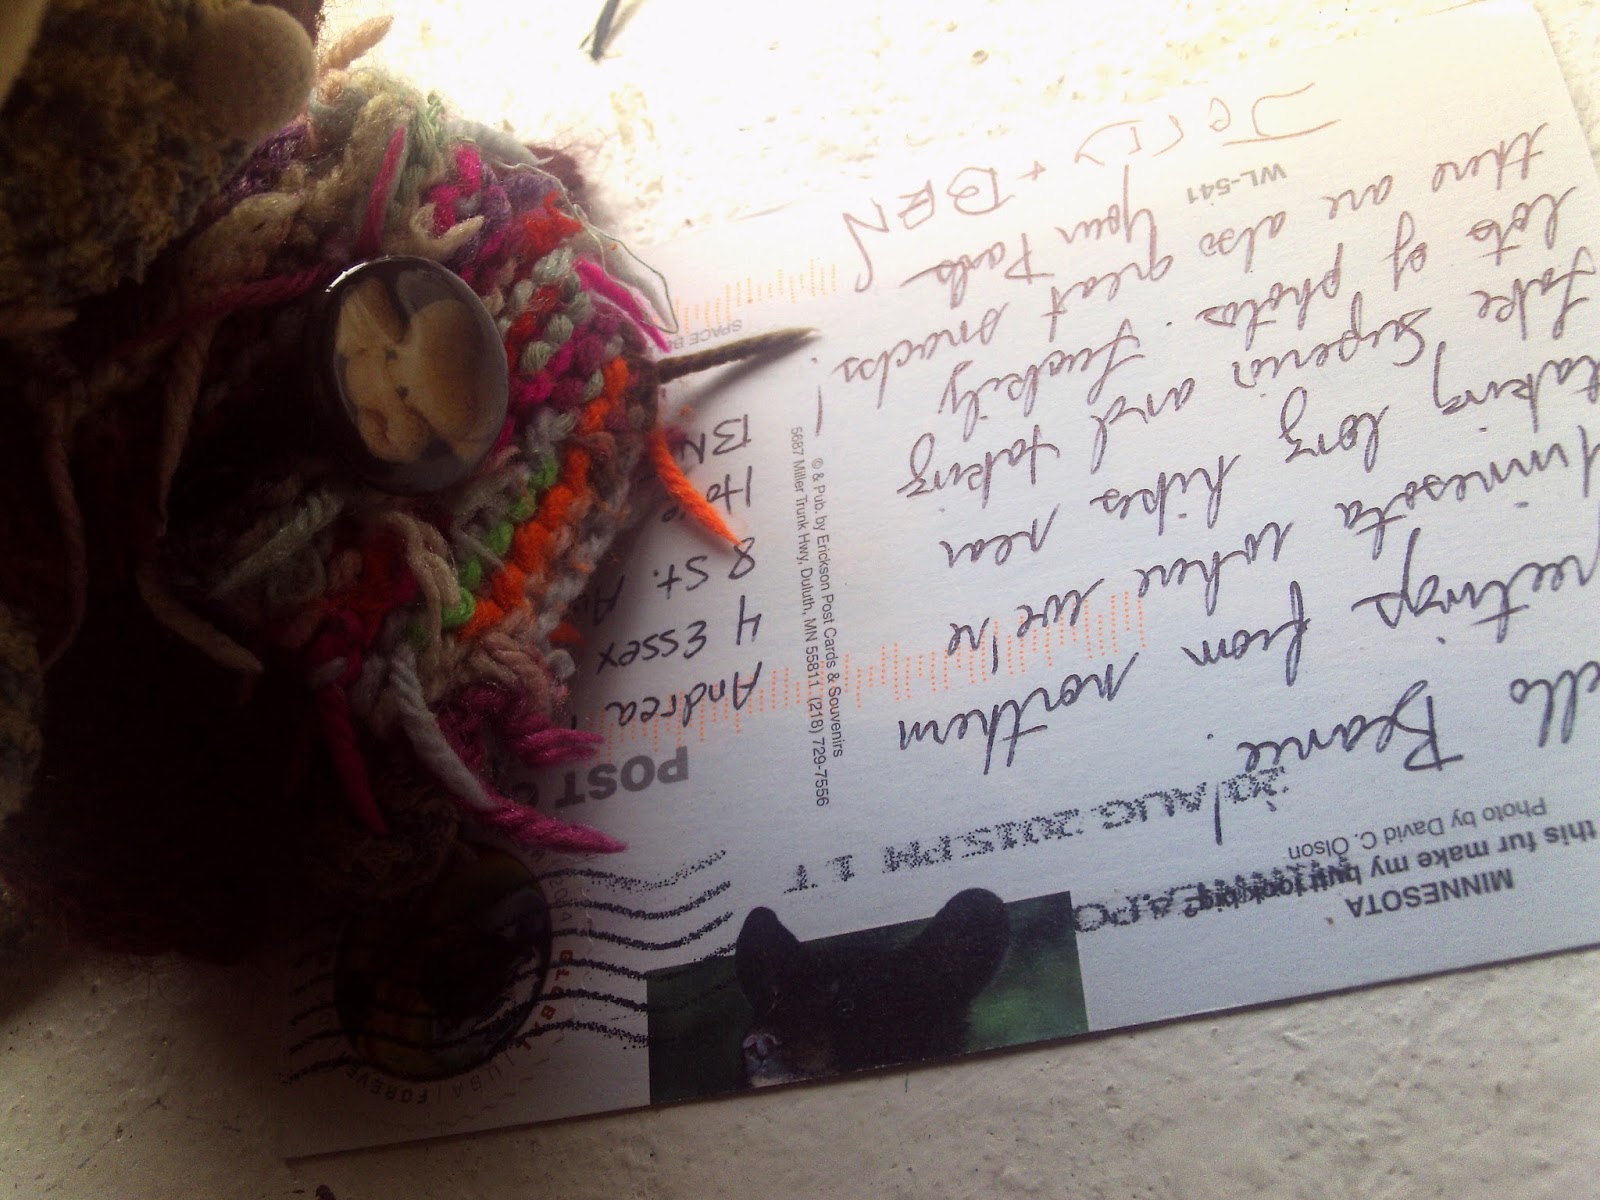 MINNESOTA
this fur make my butt look big?
Photo by David C. Olson
20 AUG 2015 PM 1 T
Beanie.
from northern
Minnesota where we're
taking long hikes near
Lake Superior and taking
lots of photos. Luckily
there are also great snacks!
Your Pals
JORD + BEN
WL-541
POST
© & Pub. by Erickson Post Cards & Souvenirs
5687 Miller Trunk Hwy, Duluth, MN 55811 (218) 729-7556
Andrea
4 Essex
8 St.
USA FOREVE
GLOBAL
2014
SPACE